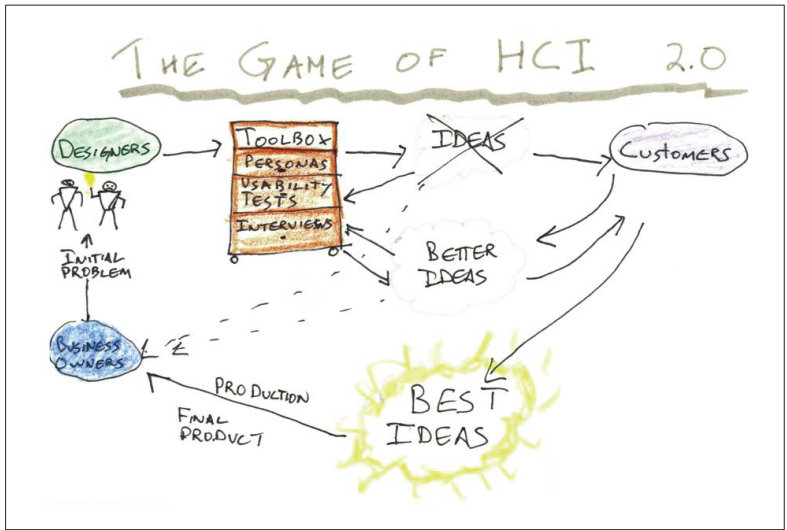 THE GAME OF HCI 2.0
DESIGNERS
TOOLBOX
PERSONAS
USABILITY
TESTS
INTERVIEWS
IDEAS
CUSTOMERS
INITIAL
PROBLEM
BETTER
IDEAS
BUSINESS
OWNERS
PRODUCTION
FINAL
PRODUCT
BEST
IDEAS